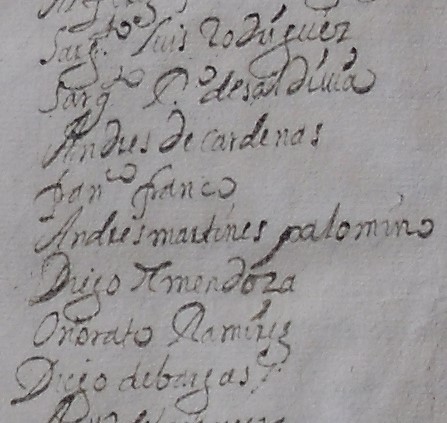 Sarg.to Luis Rodriguez
Sarg.to P.o de saldivia
Andres de cardenas
fran.co franco
Andres martines palomino
Diego mendoza
Onorato Ramires
Diego debargas